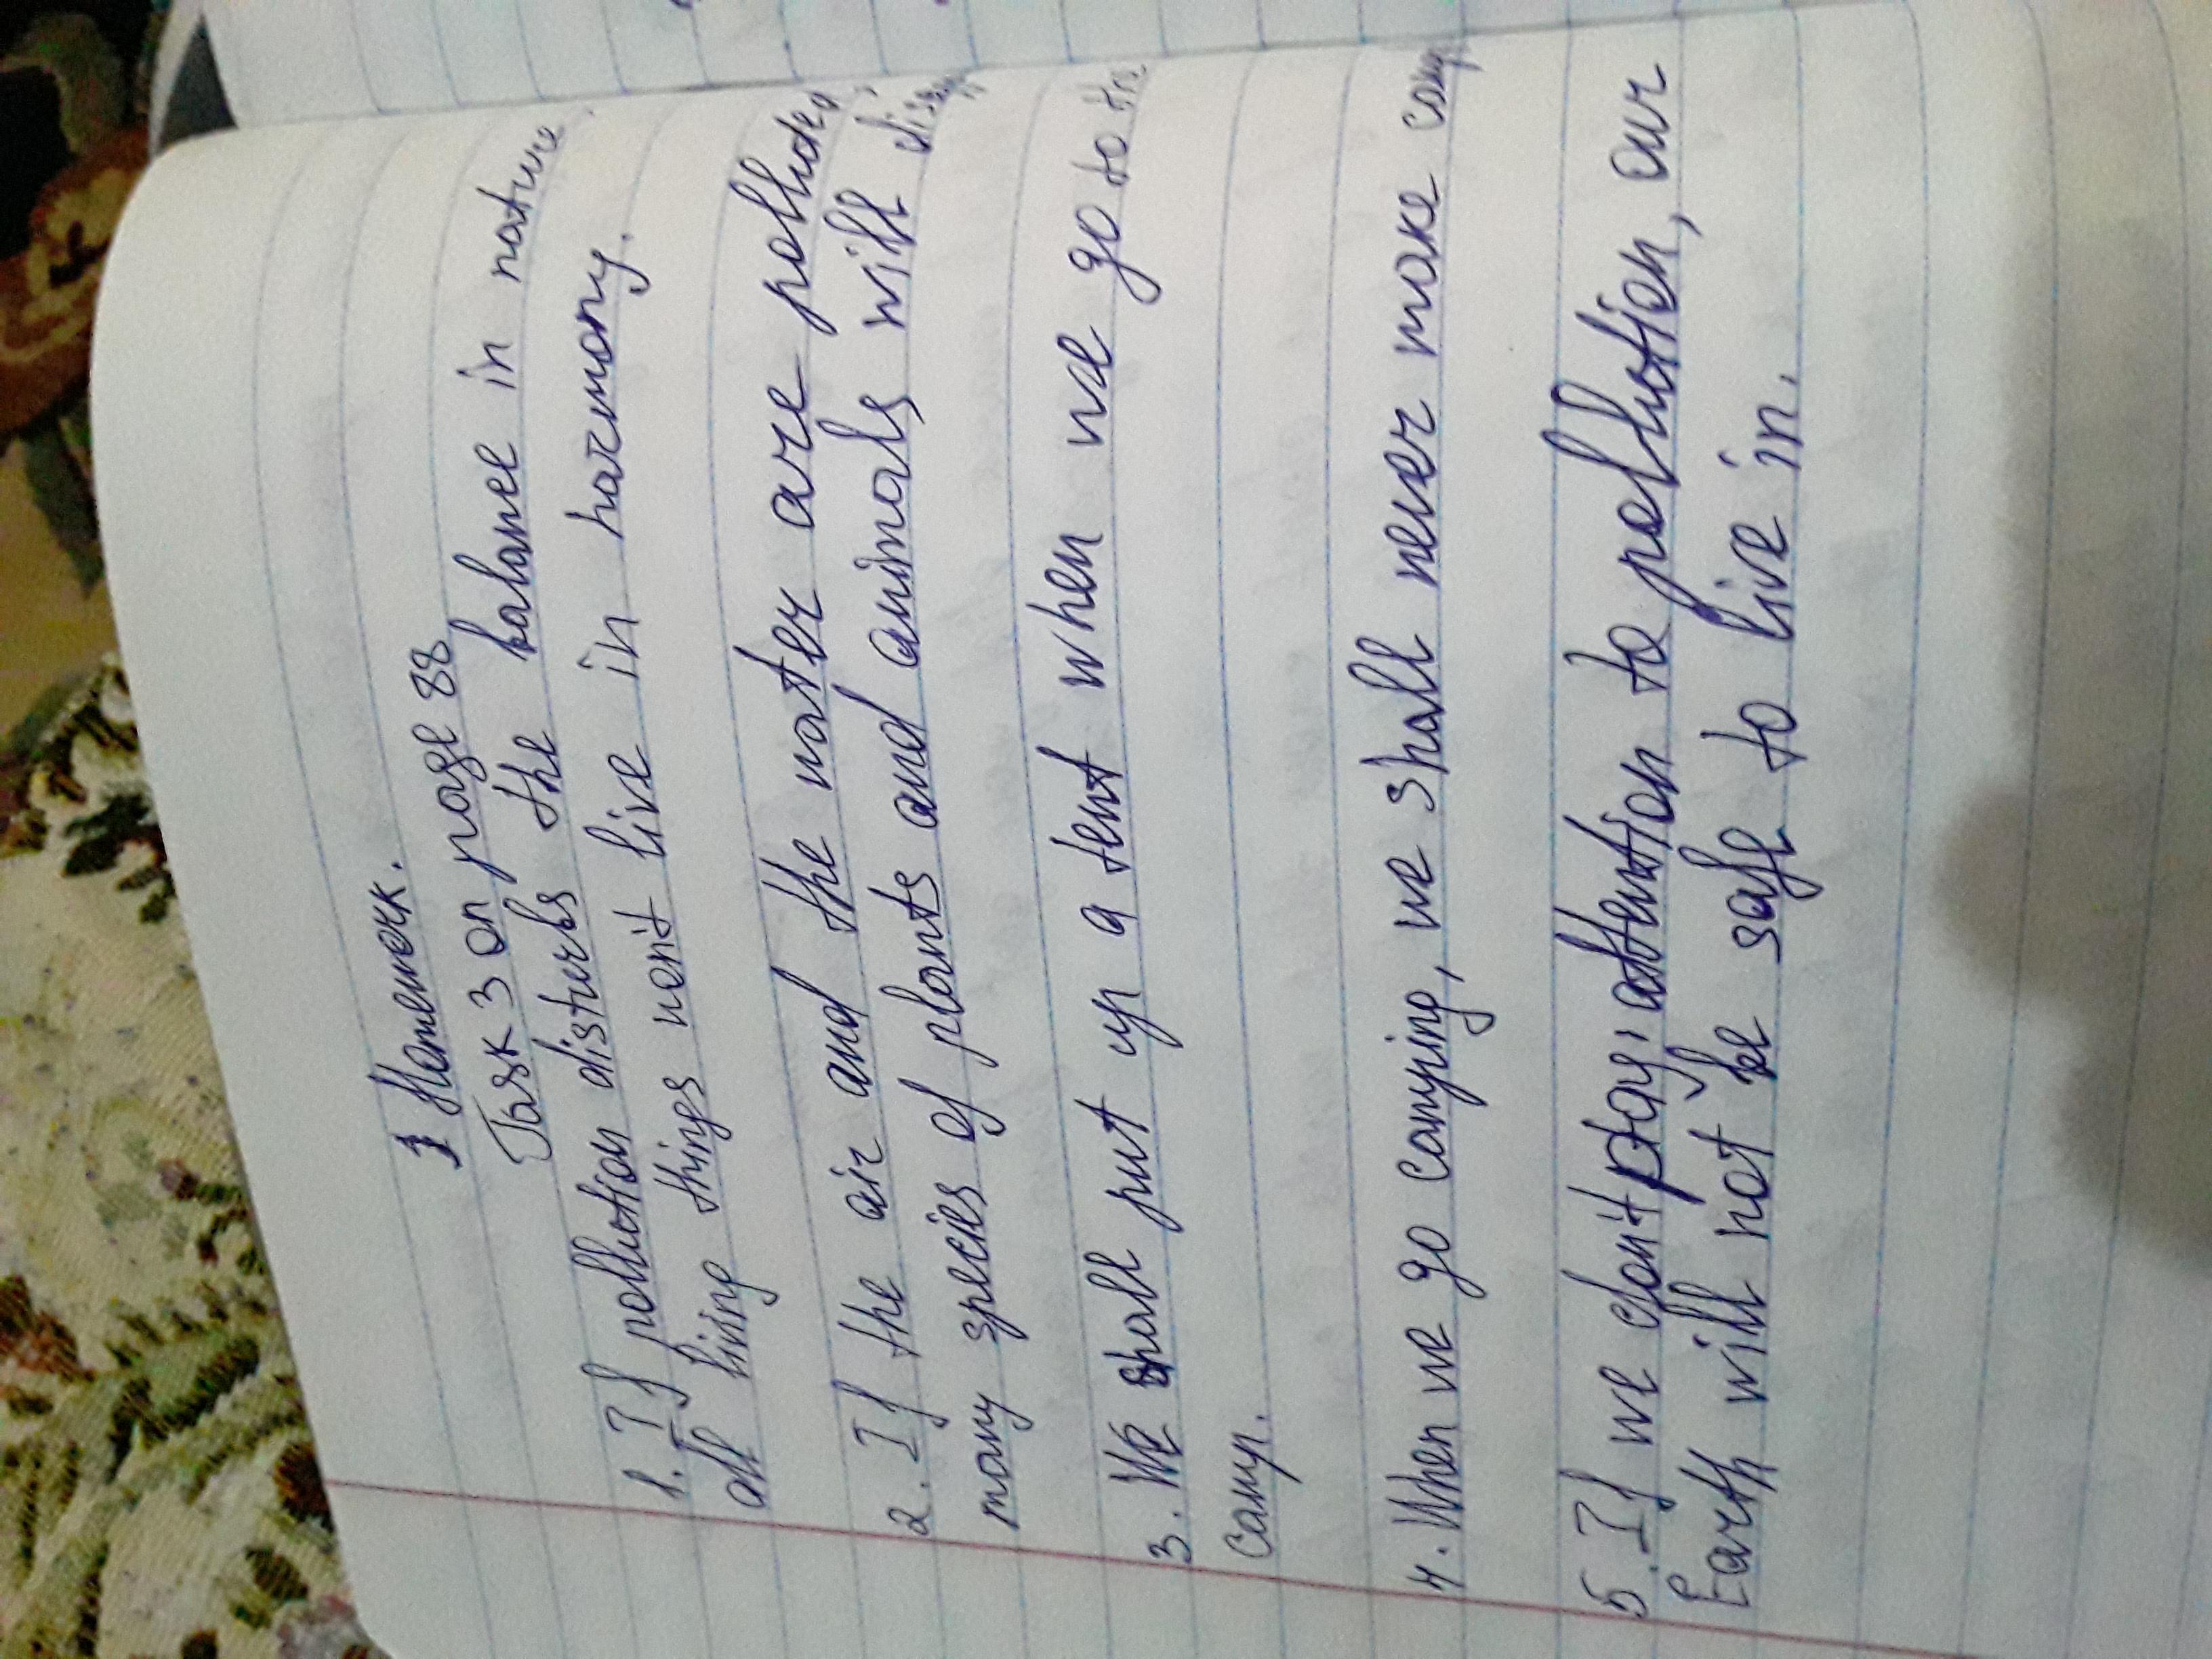 Homework.
Task 3 on page 88
1. If pollution disturbs the balance in nature,
all living things won't live in harmony.
2. If the air and the water are polluted,
many species of plants and animals will
3. We shall put up a tent when we go to
camp.
4. When we go camping, we shall never make
5. If we don't pay attention to pollution, our
Earth will not be safe to live in.